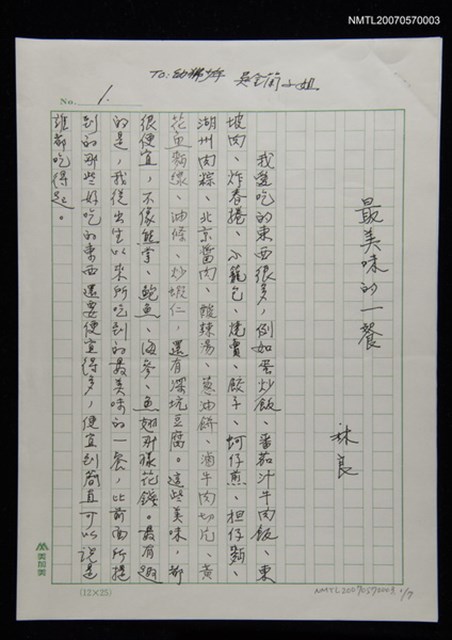 NMTL20070570003
TO:幼獅少年 吳金蘭小姐
No. 1.
最美味的一餐
林良
我愛吃的東西很多，例如蛋炒飯、番茄汁牛肉飯、東
坡肉、炸春捲、小籠包、燒賣、餃子、蚵仔煎、担仔麵、
湖州肉粽、北京醬肉、酸辣湯、蔥油餅、滷牛肉切片、黃
花魚麵線、油條、炒蝦仁，還有深坑豆腐。這些美味，都
很便宜，不像熊掌、鮑魚、海參、魚翅那樣花錢。最有趣
的是，我從出生以來所吃到的最美味的一餐，比前面所提
到的那些好吃的東西還要便宜得多，便宜到簡直可以說是
誰都吃得起。
美加美
(12×25)
NMTL20070570003 1/7